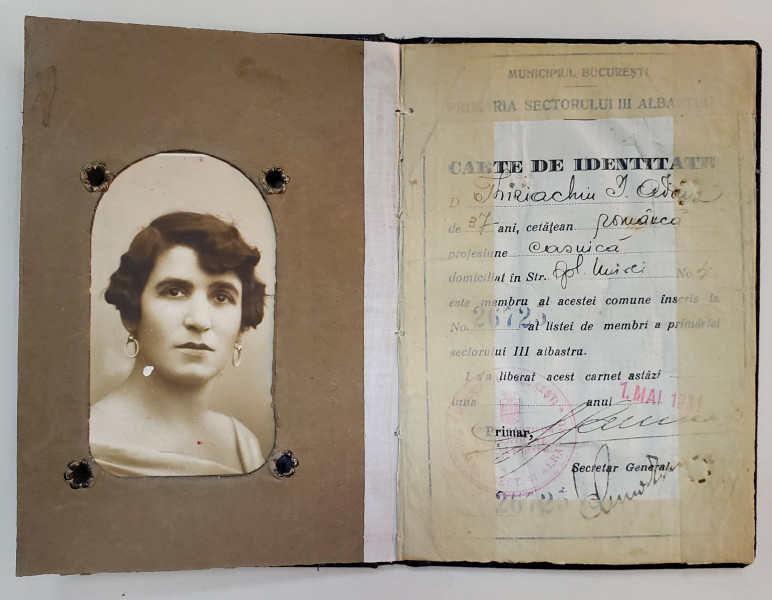 MUNICIPIUL BUCUREȘTI
PRIMARIA SECTORULUI III ALBASTRU
CARTE DE IDENTITATE
D
de 37 ani, cetățean română
profesiune casnică
domiciliat în Str. No. 4
este membru al acestei comune înscris la
No. 26725 al listei de membri a primăriei
sectorului III albastru.
I s'a liberat acest carnet astăzi
luna anul 1. MAI 1931
Primar,
Secretar General,
26725